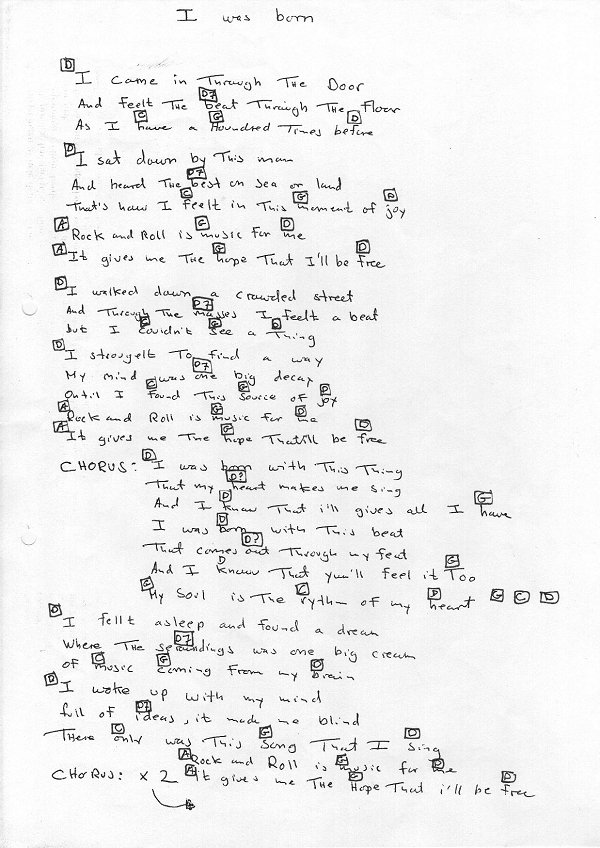 I was born
D
I came in Through The Door
D7
And feelt The beat Through The Floor
C G D
As I have a Houndred Times before
D
I sat down by This man
D7
And heard The best on sea or land
C G D
That's how I feelt in This moment of joy
A G D
Rock and Roll is music for me
A G D
It gives me The hope That I'll be free
D
I walked down a crowded street
D7
And Through The masses I feelt a beat
C G D
but I couldn't see a Thing
D
I strougelt To find a way
D7
My mind was one big decay
C G D
Ontil I found This source of joy
A G D
Rock and Roll is music for me
A G D
It gives me The hope Thatill be free
D
CHORUS: I was born with This Thing
D7
That my heart makes me sing
D G
And I know That i'll gives all I have
D
I was born with This beat
D7
That comes out Through my feat
D G
And I know That you'll feel it Too
G C D G C D
My Soil is The rythm of my heart
D
I fellt asleep and found a dream
D7
Where The seroundings was one big cream
C G D
of music coming From my brain
D
I woke up with my mind
D7
full of ideas, it made me blind
C G D
There only was This Song That I sing
A G D
Rock and Roll is music for me
A G D
CHORUS: x 2 It gives me The Hope That i'll be free